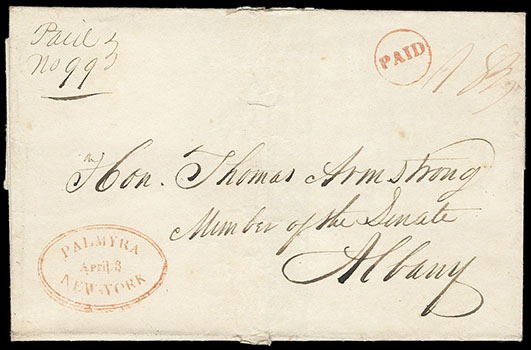 Paid
No 99
PAID
Hon. Thomas Armstrong
Member of the Senate
Albany
PALMYRA
April 3
NEW-YORK